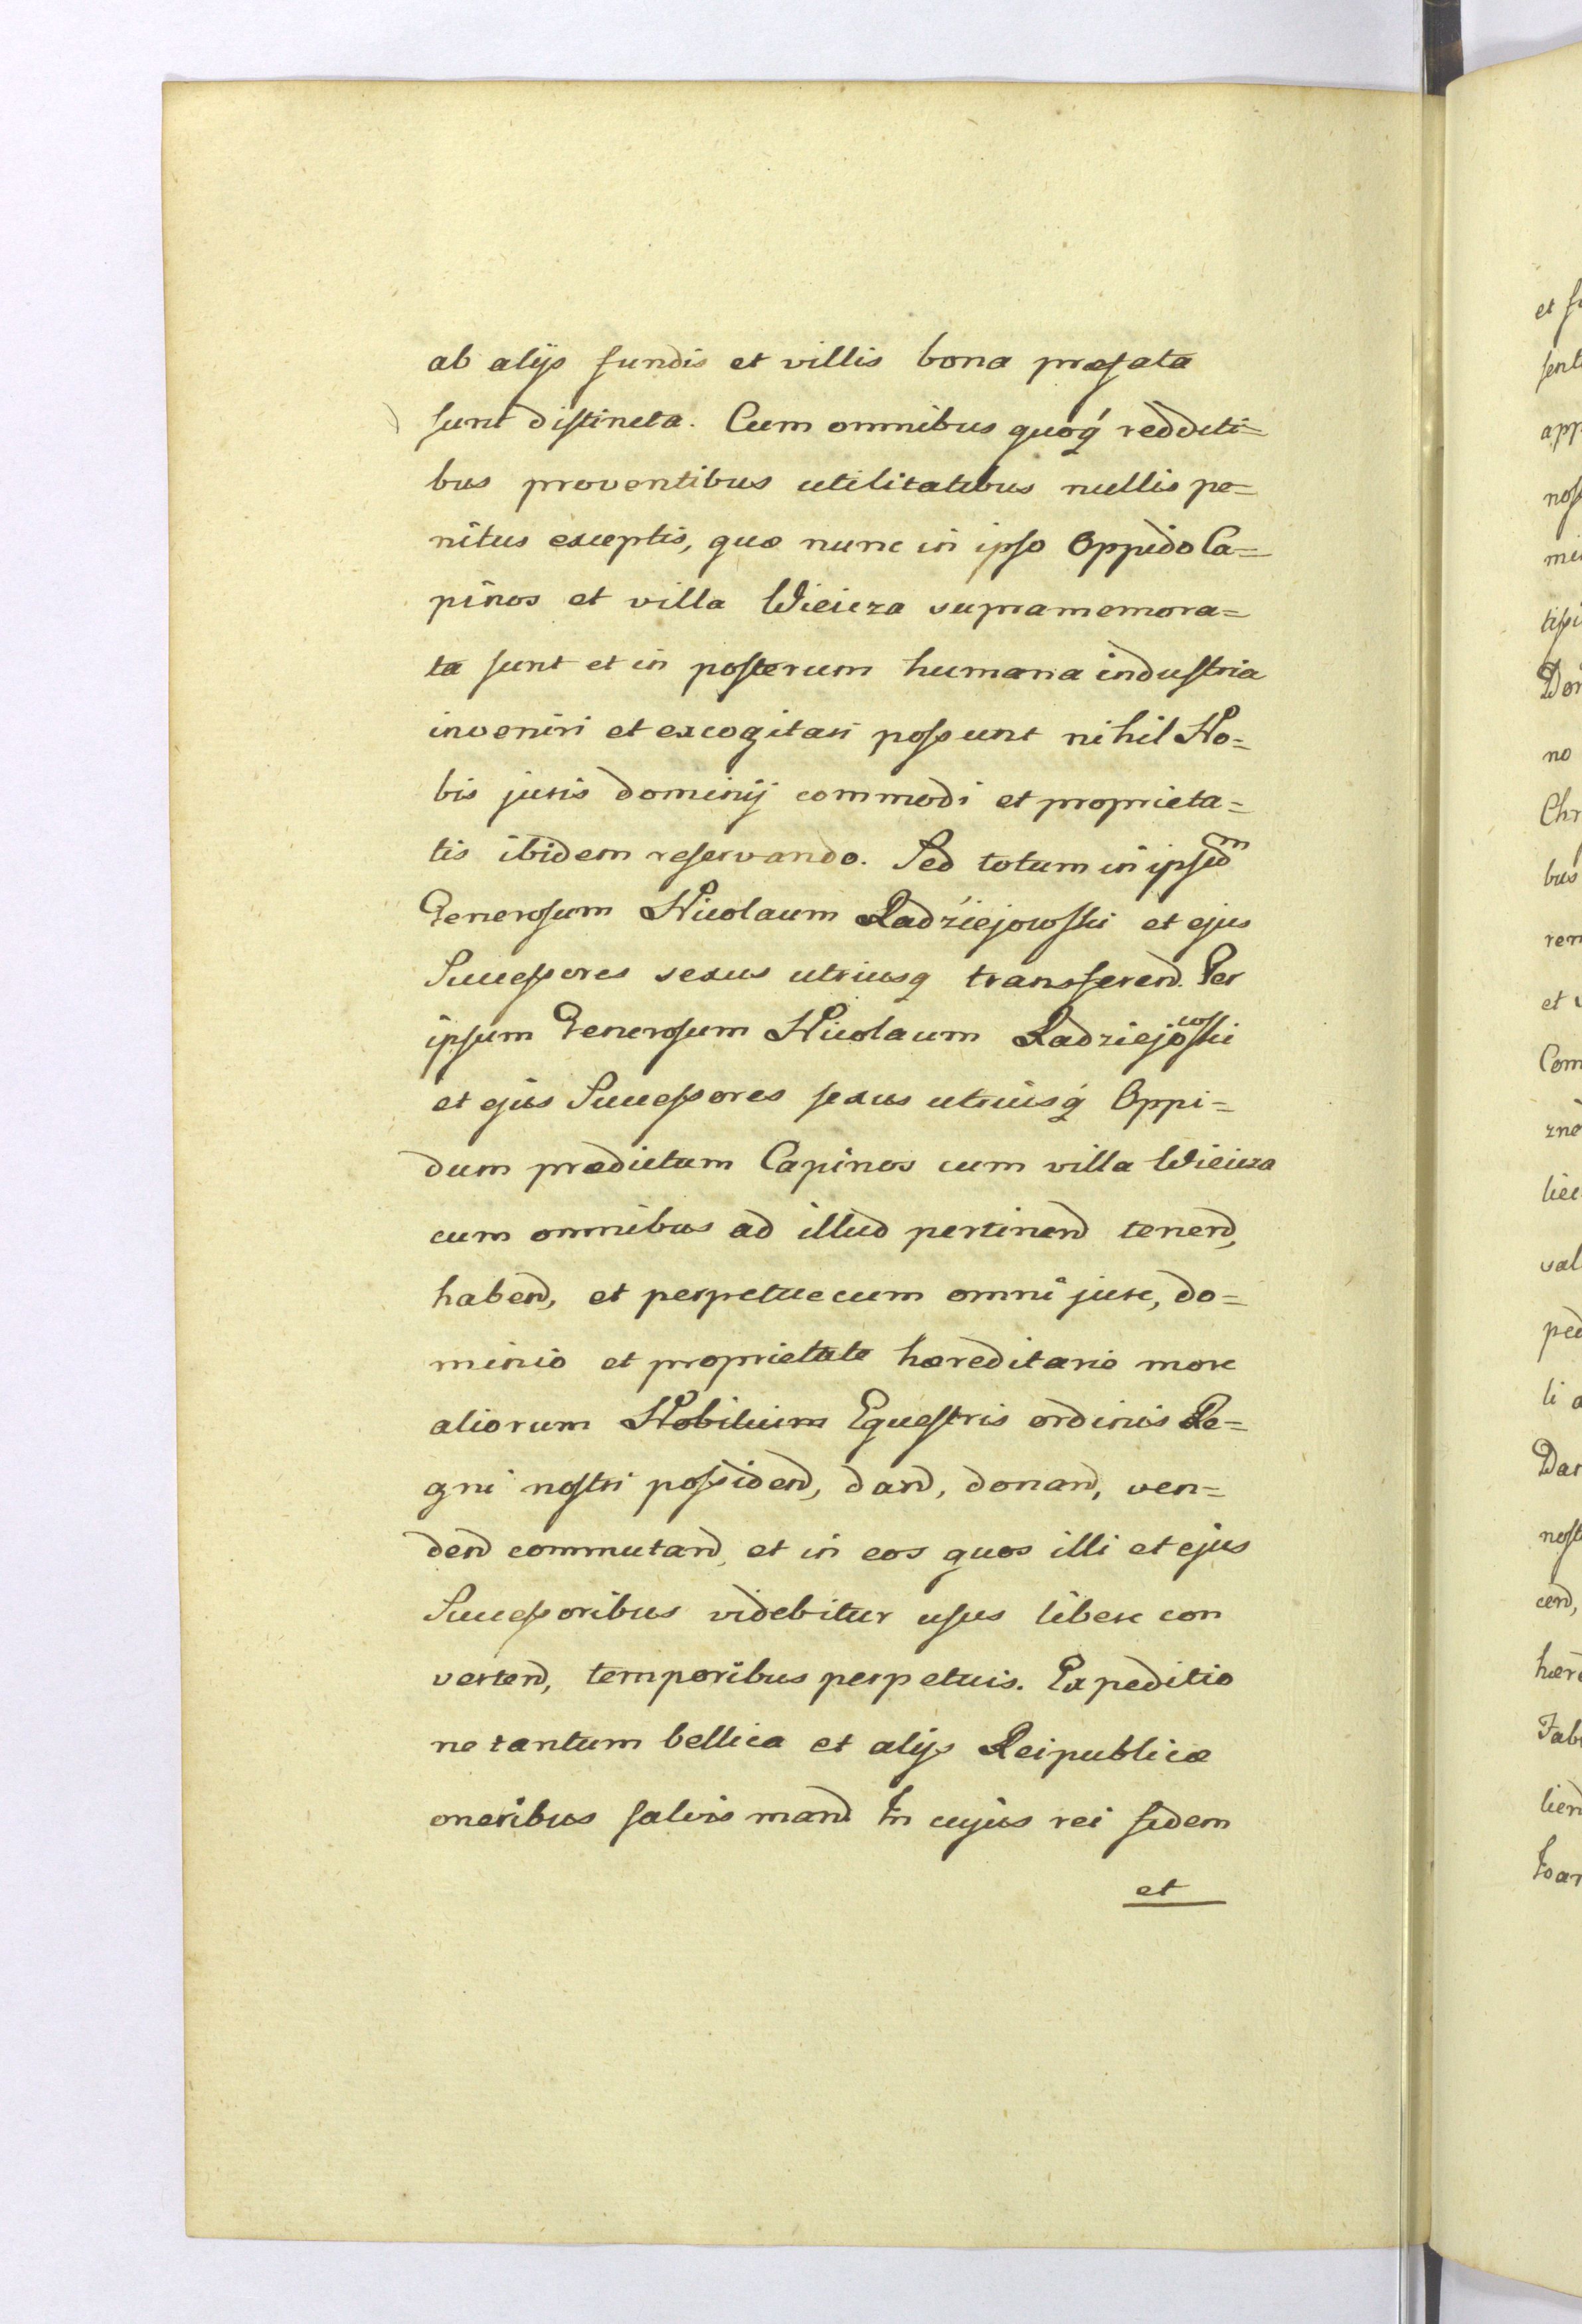 ab alijs fundis et villis bona præfata
sunt distincta. Cum omnibus quoq́ redditi=
bus proventibus utilitatibus nullis pe=
nitus exceptis, quæ nunc in ipso Oppido Ca=
pinos et villa Wieicza supramemora=
ta sunt et in posterum humana industria
inveniri et excogitari possunt nihil No=
bis juris dominij commodi et proprieta=
tis ibidem reservando. Sed totum in ipsum
Generosum Nicolaum Radziejowski et ejus
Successores sexus utriusq transferend. Per
ipsum Generosum Nicolaum Radziejowski
et ejus Successores sexus utriusq́ Oppi=
dum prædictum Capinos cum villa Wieicza
cum omnibus ad illud pertinend tenend,
habend, et perpetue cum omni jure, do=
minio et proprietate hæreditario more
aliorum Nobilium Equestris ordinis Re=
gni nostri possidend, dand, donand, ven=
dend commutand, et in eos quos illi et ejus
Successoribus videbitur usus libere con
vertend, temporibus perpetuis. Expeditio
ne tantum bellica et alijs Reipublicæ
oneribus salvis mand. In cujus rei fidem
et